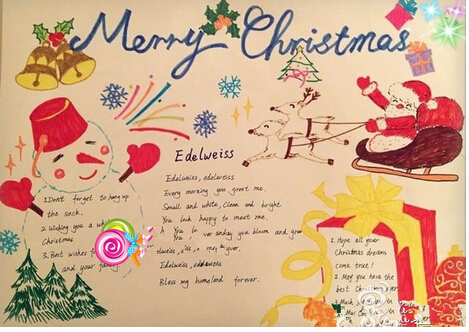 Merry Christmas
1.Don't forget to hang up
the sock.
2. Wishing you a
Christmas
3. Best wishes
and your family
Edelweiss
Edelweiss, edelweiss
Every morning you greet me.
Small and white, Clean and bright.
You look happy to meet me.
you bloom and grow
ever
Edelweiss, edelweiss
Bless my homeland forever.
1. Hope all your
Christmas dreams
come true!
2. May you have the
best Christmas ever